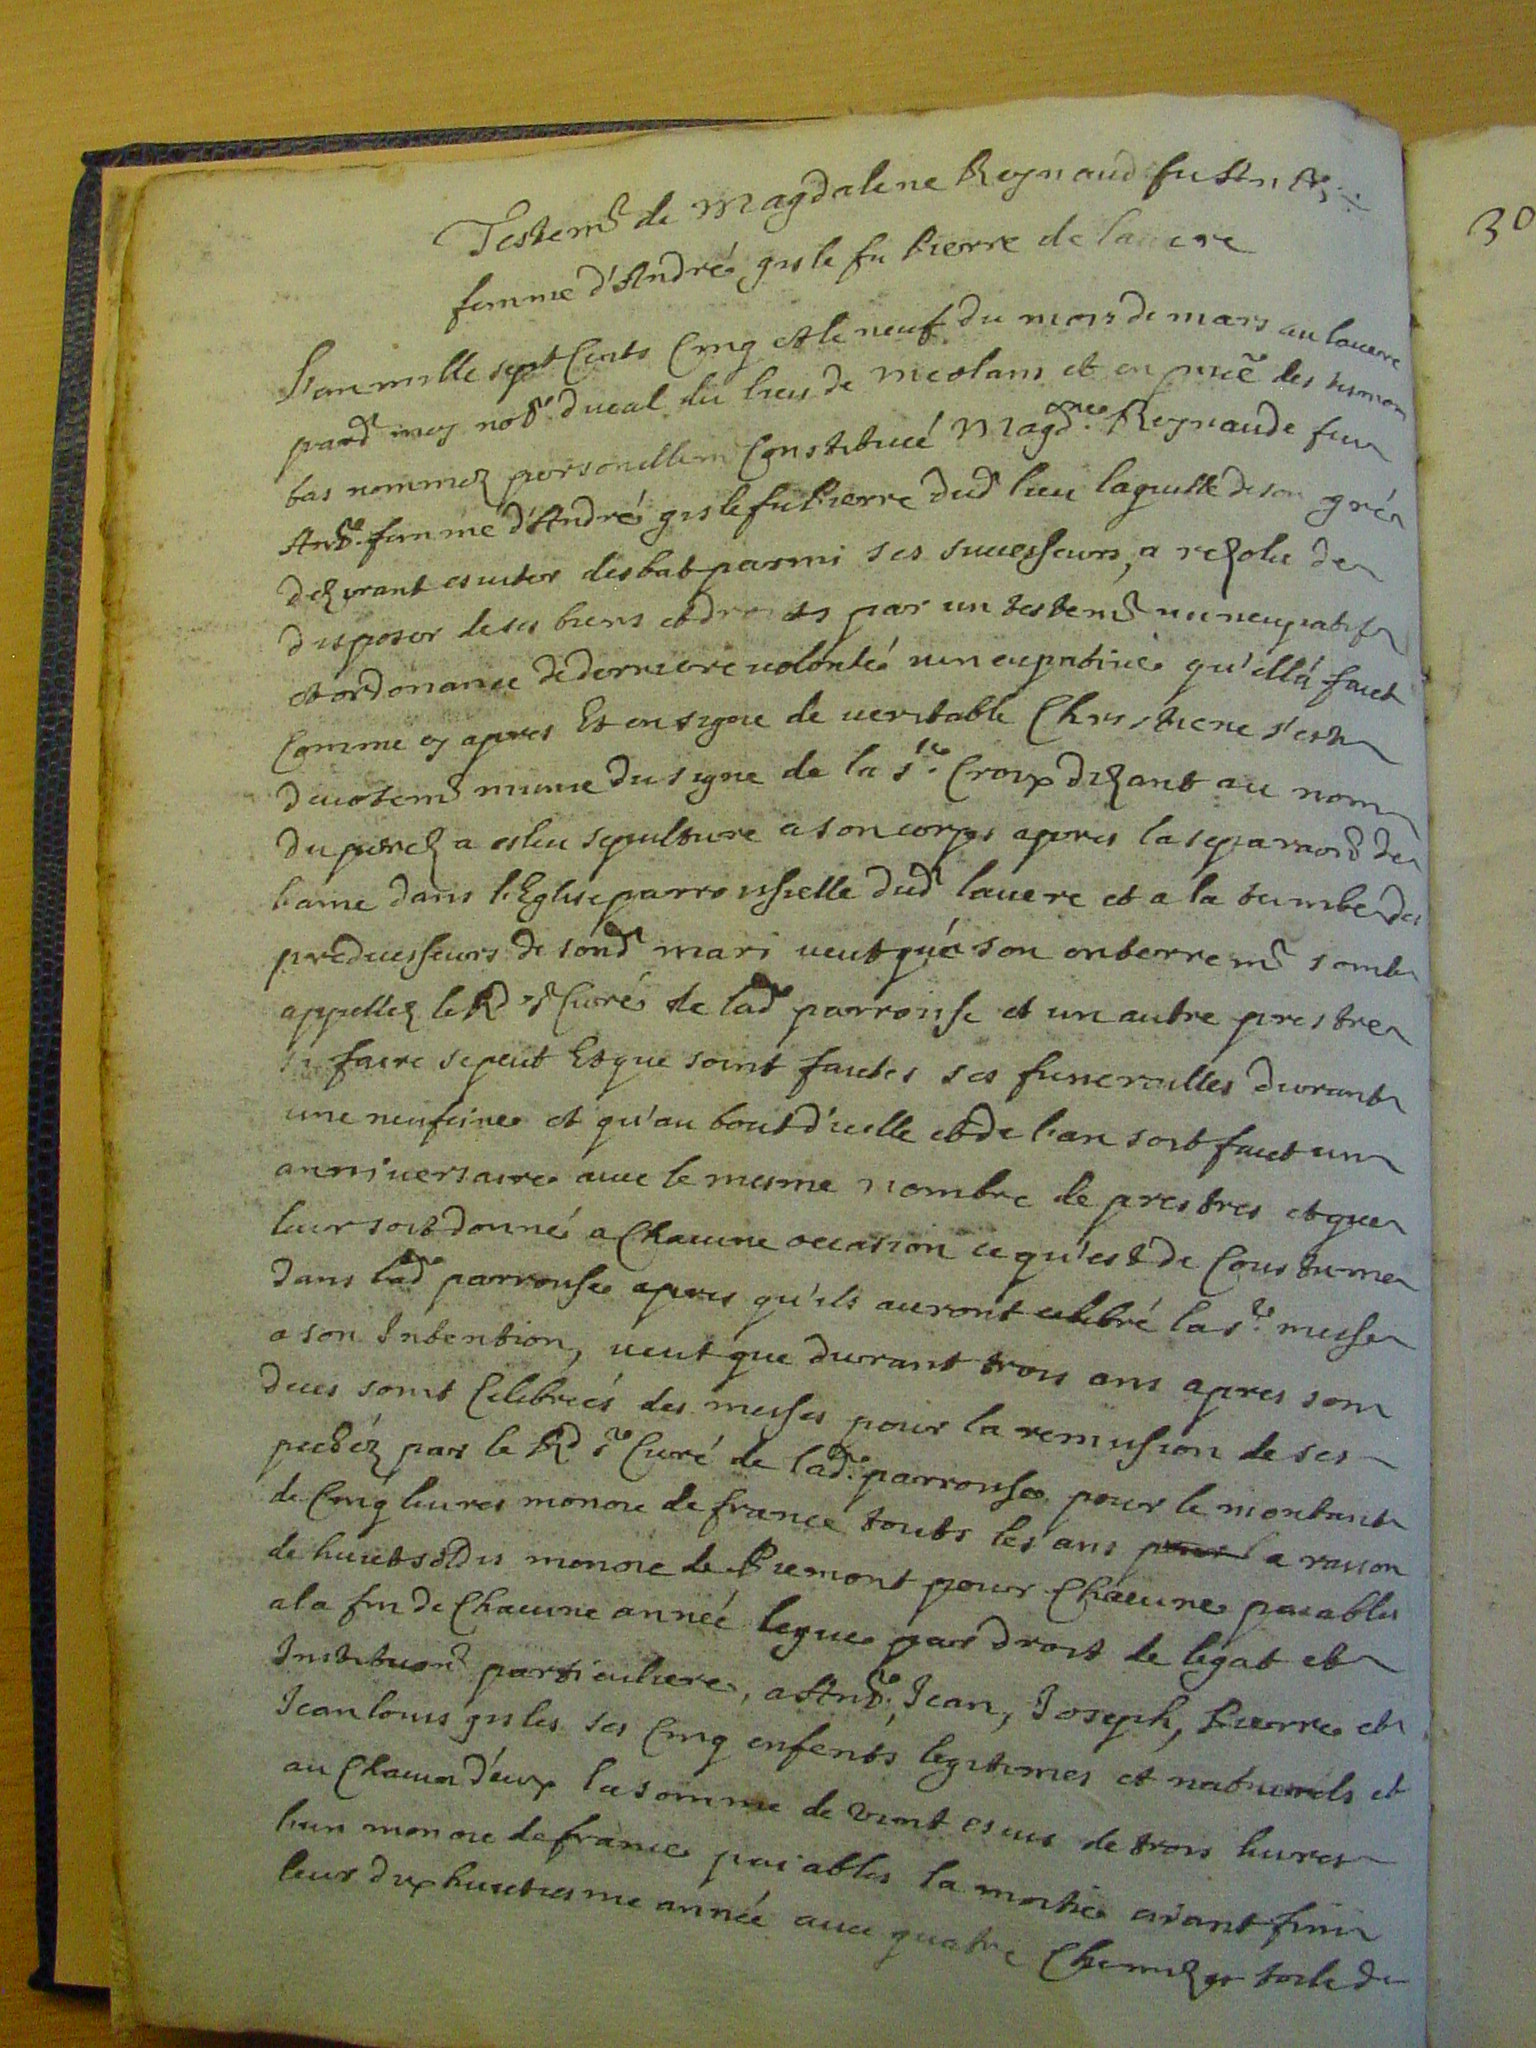 Testem^t de Magdalene Reynaud fu An^t^e
femme d'André gisle fu Pierre de lauere
L'an mille sept Cents Cinq et le neuf du mois de mars au lauere
pard^t moy not^re ducal du lieu de meolans et en pnce des tesmons
bas nommez personellem^t Constituée Magd^ne Reynaude fu
Ant^e femme d'André gisle fu Pierre dud^t lieu laquelle de son gré
dezirant esuiter desbat parmi ses successeurs, a rezolu de
disposer de ses biens et droits par un testem^t nuncupatif
et ordonance de derniere volontée nuncupative qu'ella fait
Comme cy apres Et en signe de veritable Christiene s'est
devotem^t munie du signe de la s^te Croix dizant au nom
du pere & a esleu sepulture a son corps apres la separaon de
l'ame dans l'Eglise parroissielle dud^t lauere et a la tumbe des
predecesseurs de sond^t mari veut qu'a son enterrem^t soint
appellez le R^d s^r Curé de lad^e parroisse et un autre prestre
si faire se peut Et que soint faites ses funerailles durant
une neufeine et qu'au bout d'icelle et de l'an soit fait un
anniversaire avec le mesme nombre de prestres et que
leur soit donné a Chacune occasion ce qu'est de Coustume
dans lad^e parroisse apres qu'ils auront celebré la s^te messe
a son Intention, veut que durant trois ans apres son
deces soint Celebreés des messes pour la remission de ses
pechéz par le R^d s^r Curé de lad^e parroisse pour le montant
de Cinq livres monoie de france touts les ans pour a raison
de huict soldis monoie de Piemont pour Chacune paiables
a la fin de Chacune année legue par droit de legat et
Instituon particuliere, a Ant^e, Jean, Joseph, Pierre et
Jean louis gisles ses Cinq enfents legitimes et naturels et
au Chacun d'eux la somme de vint escus de trois livres
l'un monoie de france paiables la moitie aiant fini
leur dixhuictiesme année avec quatre Chemizes toile de
30